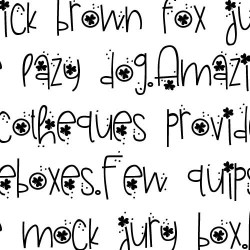 ick brown fox ju
e lazy dog.Amazi
cotheques provide
eboxes.Few quips
e mock jury box